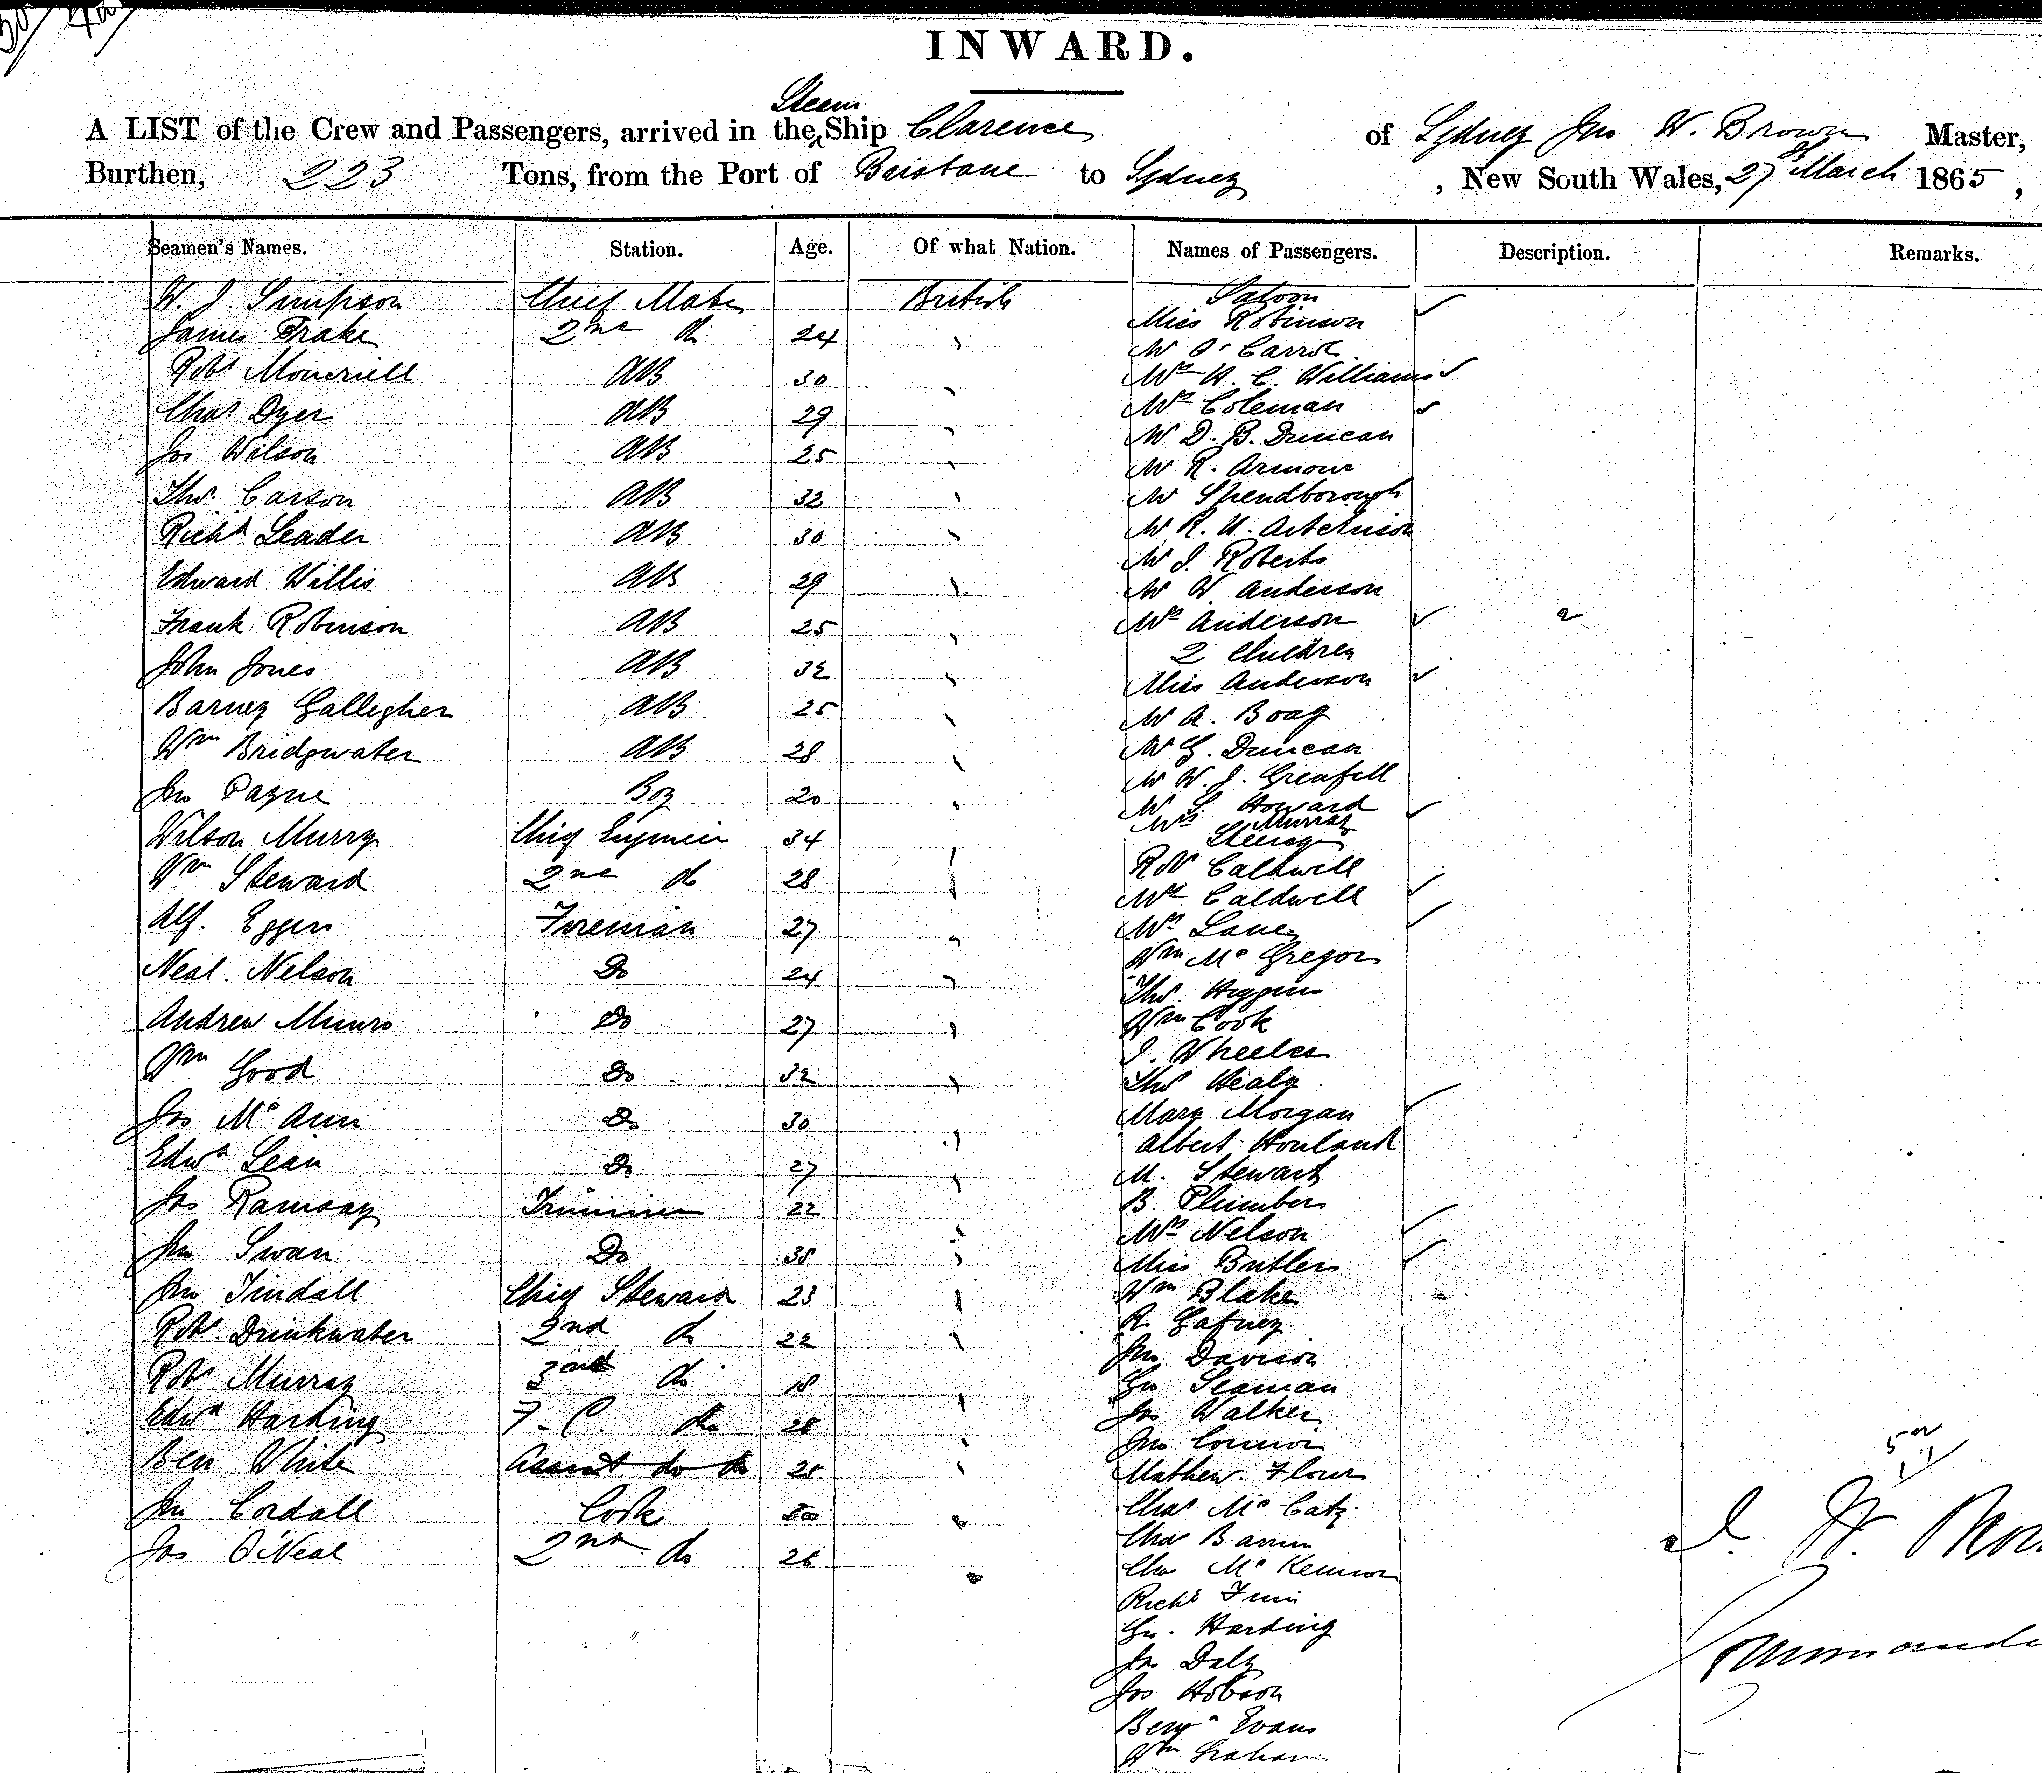 INWARD.
A LIST of the Crew and Passengers, arrived in the Steam Ship Clarence of Sydney Jno W. Brown Master,
Burthen, 223 Tons, from the Port of Brisbane to Sydney, New South Wales, 27th March 1865,
Seamen's Names. Station. Age. Of what Nation. Names of Passengers. Description. Remarks.
W. J. Simpson Chief Mate British
James Drake 2nd do 24
Robt AB 30
Chas Dyer AB 29
Jas Wilson AB 25
Thos Carson AB 32
Richd Leader AB 30
Edward Willis AB 29
Frank Robinson AB 25
John Jones AB 32
Barney Gallegher AB 25
Wm Bridgwater AB 28
Jno Payne Boy 20
Wilson Murry Chief Engineer 34
Wm Steward 2nd do 28
Alf. Eggers Foreman 27
Neal Nelson Do 24
Andrew Munro Do 27
Wm Good Do 32
Jas McAnn Do 30
Edwd Lean Do 27
Jas Ramsay Trimmer 22
Jno Swan Do 38
Jno Tindall Chief Steward 23
Robt Drinkwater 2nd do 22
Robt Murray 3rd do 18
Edwd Harding F. C. do 28
Ben White Assist do do 28
Jno Cordall Cook
Jas O'Neal 2nd do 26
Saloon
Miss Robinson
Mr O'Carrol
Mrs H. C. Williams
Mrs Coleman
Mr D. B. Duncan
Mr R. Armour
Mr Spendborough
Mr R. U. Aitchison
Mr J. Roberts
Mr W Anderson
Mrs Anderson 2
2 Children
Miss Anderson
Mr A. Boag
Mr G. Duncan
Mr W. J. Grenfell
Mr S. Howard
Mrs Murray
Steerage
Robt Caldwell
Mrs Caldwell
Mrs Lane
Wm McGregor
Thos. Higgins
Wm Cook
J. Wheeler
Thos Healy
Mary Morgan
Albert Houland
M. Stewart
B. Plumber
Mrs Nelson
Miss Butler
Wm Blake
R. Gafney
Jno Davison
Geo Seaman
Jas Walker
Jno Connor
Mathew Flour
Chas McCaty
Chas Barrin
Chas McKennon
Richd
Geo. Harding
Jas Daly
Jas Hobson
Benjn Evans
Wm Graham
J. W. Brow
Commande